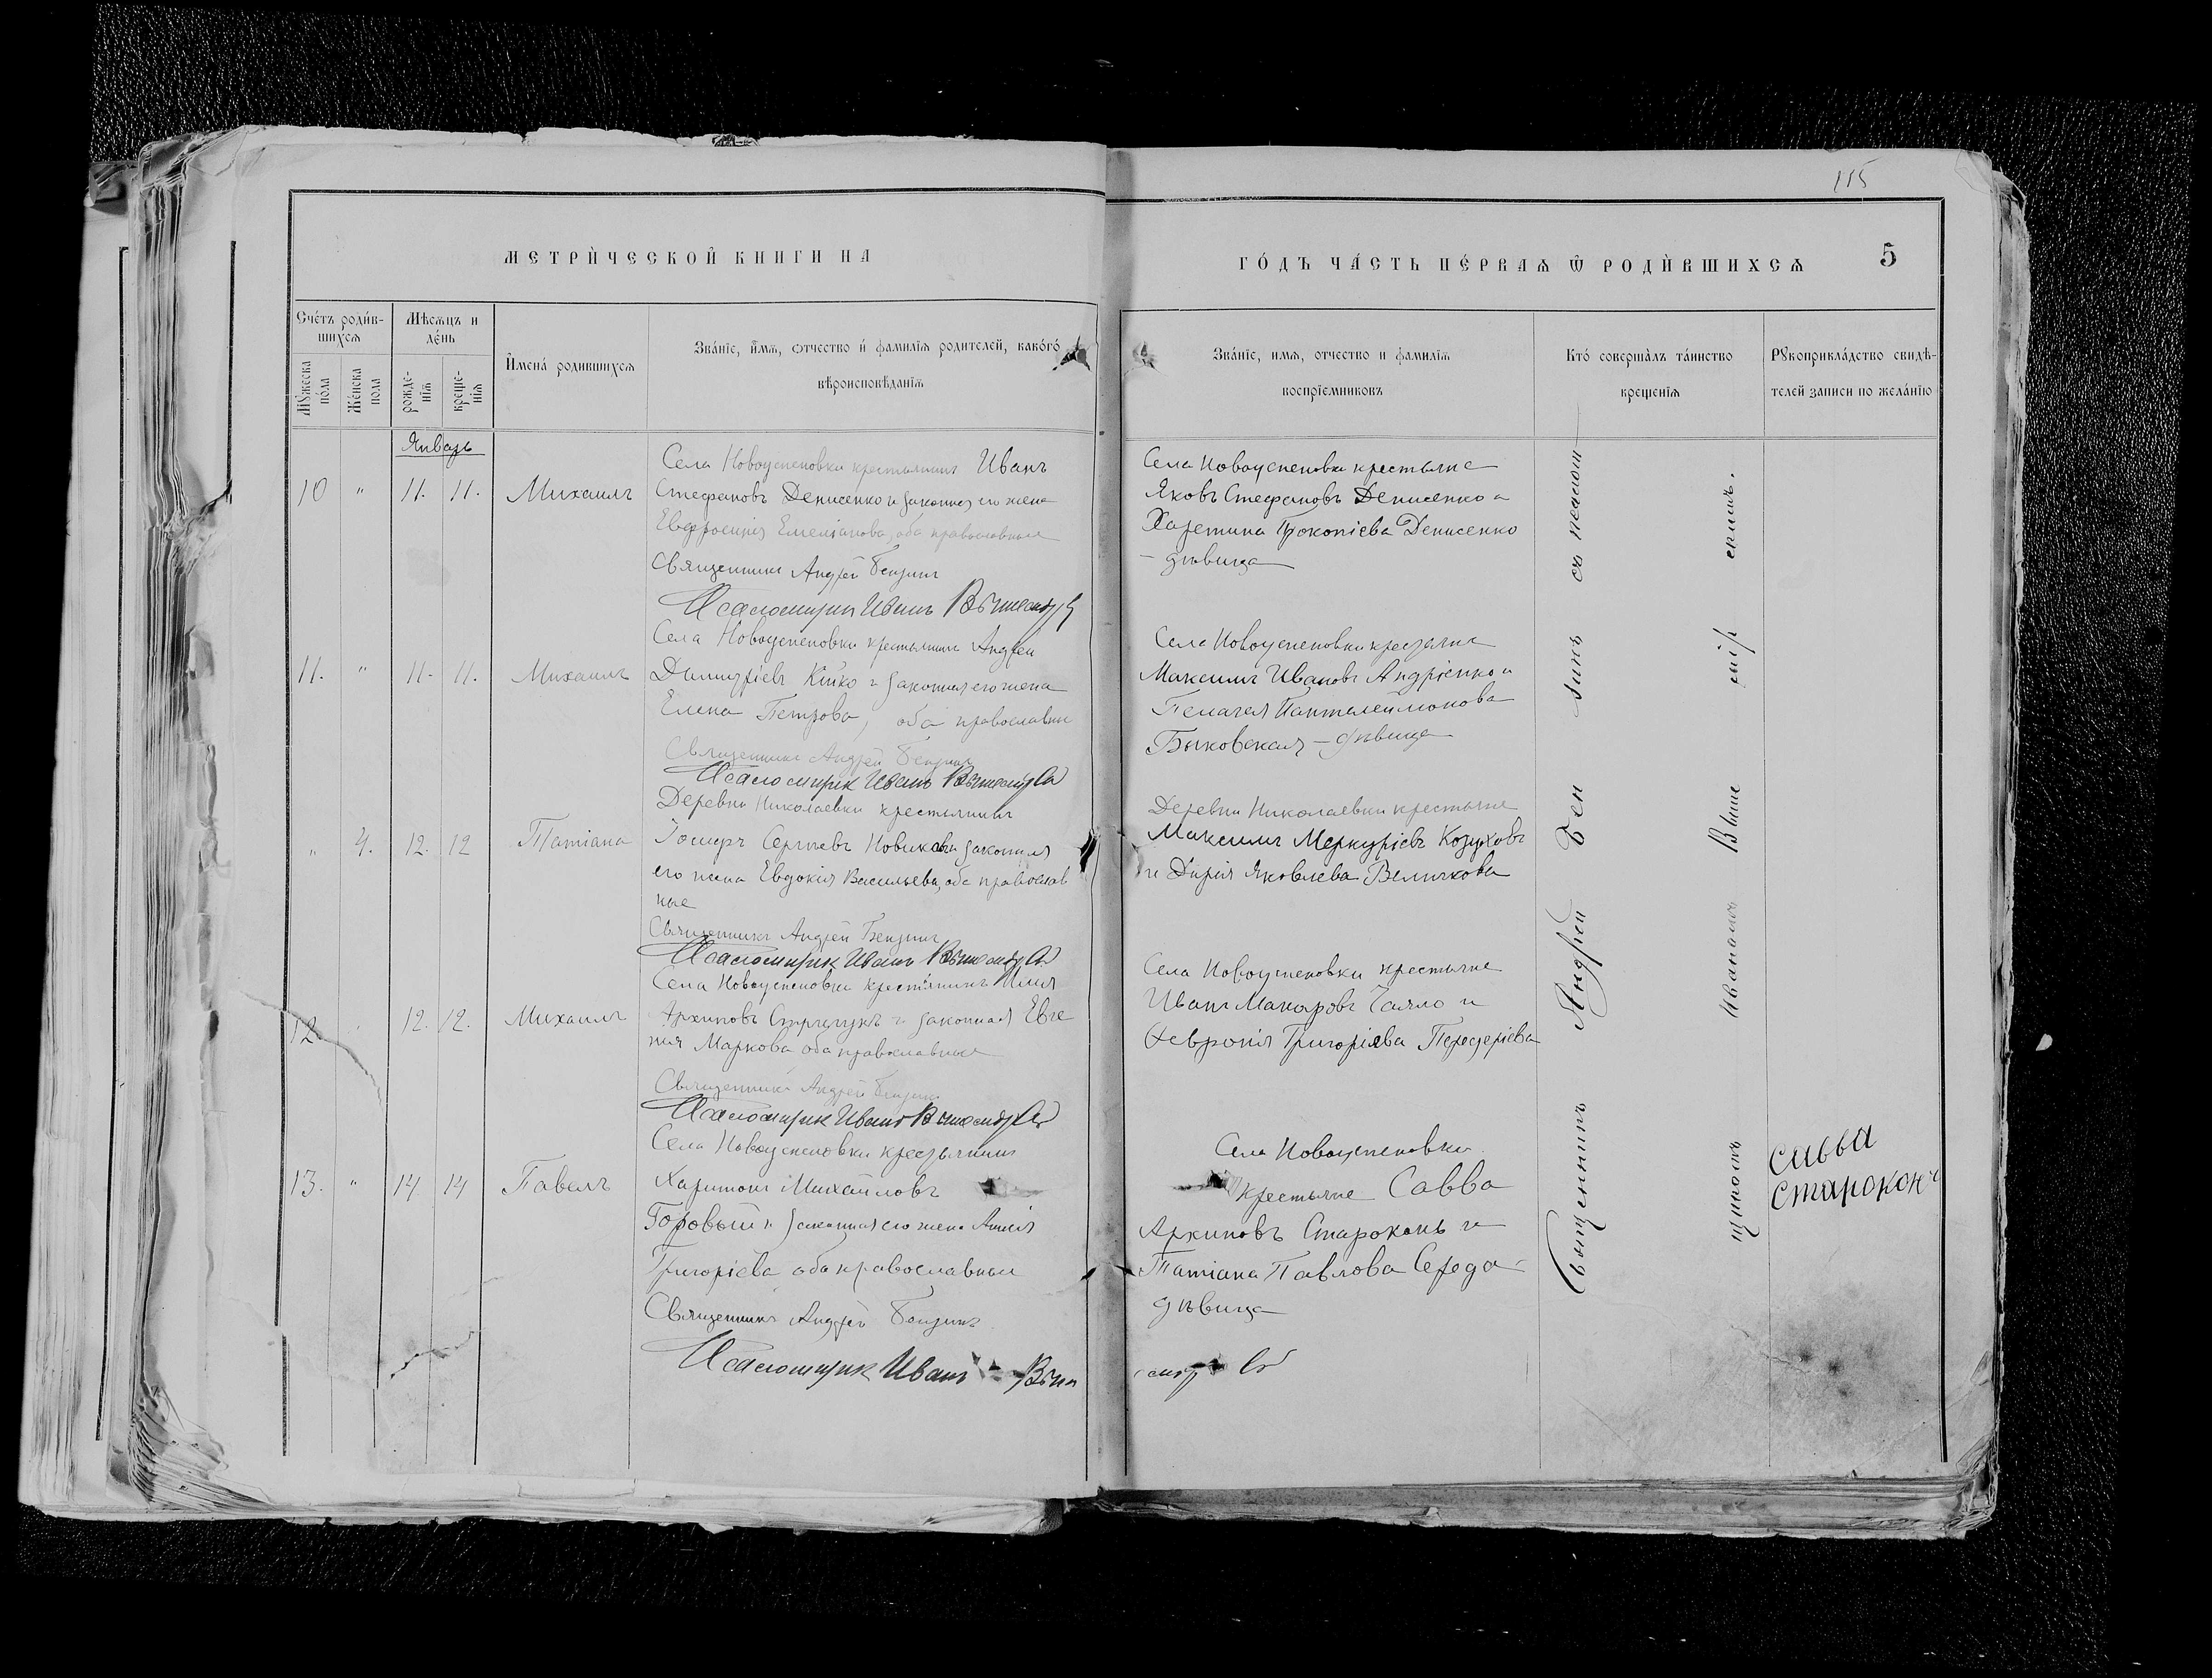 115
МЕТРИ́ЧЕСКОЙ КНИГИ НА
ГО́ДЪ ЧА́СТЬ ПЕ́РВАЯ Ѡ РОДИ́ВШИХСЯ
5
Сче́тъ роди́в-
шихся
Мѣсяцъ и
де́нь
Мꙋжеска по́ла
Же́нска пола
рожде-
нія
креще-
нія
Имена́ родившихся
Зва́ніе, и́мя, отчество и́ фамилія родителей, како́го́
вѣроисповѣ́данія
Зва́ніе, имя, отчество и фамилія
воспріемниковъ
Кто́ совершалъ та́инство
крещенія
Рꙋкоприкла́дство свидѣ-
телей записи по жела́нію
Январь
10 " 11. 11. Михаилъ
Села Новоуспеновки крестьянинъ Иванъ
Стефановъ Денисенко и законная его жена
Евфросинія Емеліанова, оба православные
Священникъ Андрей
Псаломщикъ Иванъ
Села Новоуспеновки крестьяне
Яковъ Стефановъ Денисенко и
Харетина Прокопіева Денисенко
– дѣвица
11. " 11. 11. Михаилъ
Села Новоуспеновки крестьянинъ Андрей
Димитріевъ Кійко и законная его жена
Елена Петрова, оба православные
Священникъ Андрей
Псаломщикъ Иванъ
Села Новоуспеновки крестьяне
Максимъ Ивановъ Андріенко и
Пелагея Пантелеимонова
Быковская – дѣвица
" 4. 12. 12 Татіана
Деревни Николаевки крестьянинъ
Іосифъ Сергѣевъ Новиковъ и законная
его жена Евдокія Васильева, оба православ
ные
Священникъ Андрей
Псаломщикъ Иванъ
Деревни Николаевки крестьяне
Максимъ Меркуріевъ Козуховъ
и Дарія Яковлева Величкова
12 " 12. 12. Михаилъ
Села Новоуспеновки крестьянинъ Илія
Архиповъ и законная Евге
нія Маркова оба православные
Священникъ Андрей
Псаломщикъ Иванъ
Села Новоуспеновки крестьяне
Иванъ Макаровъ и
Февронія Григоріева
13. " 14 14 Павелъ
Села Новоуспеновки крестьянинъ
Харитонъ Михайловъ
Горовый и законная его жена
Григоріева оба православные
Священникъ Андрей
Псаломщикъ Иванъ
Села Новоуспеновки
крестьяне Савва
Архиповъ Староконь и
Татіана Павлова Середа –
дѣвица
Священникъ Андрей съ псаломщикомъ Иваномъ
Савва
Староконъ